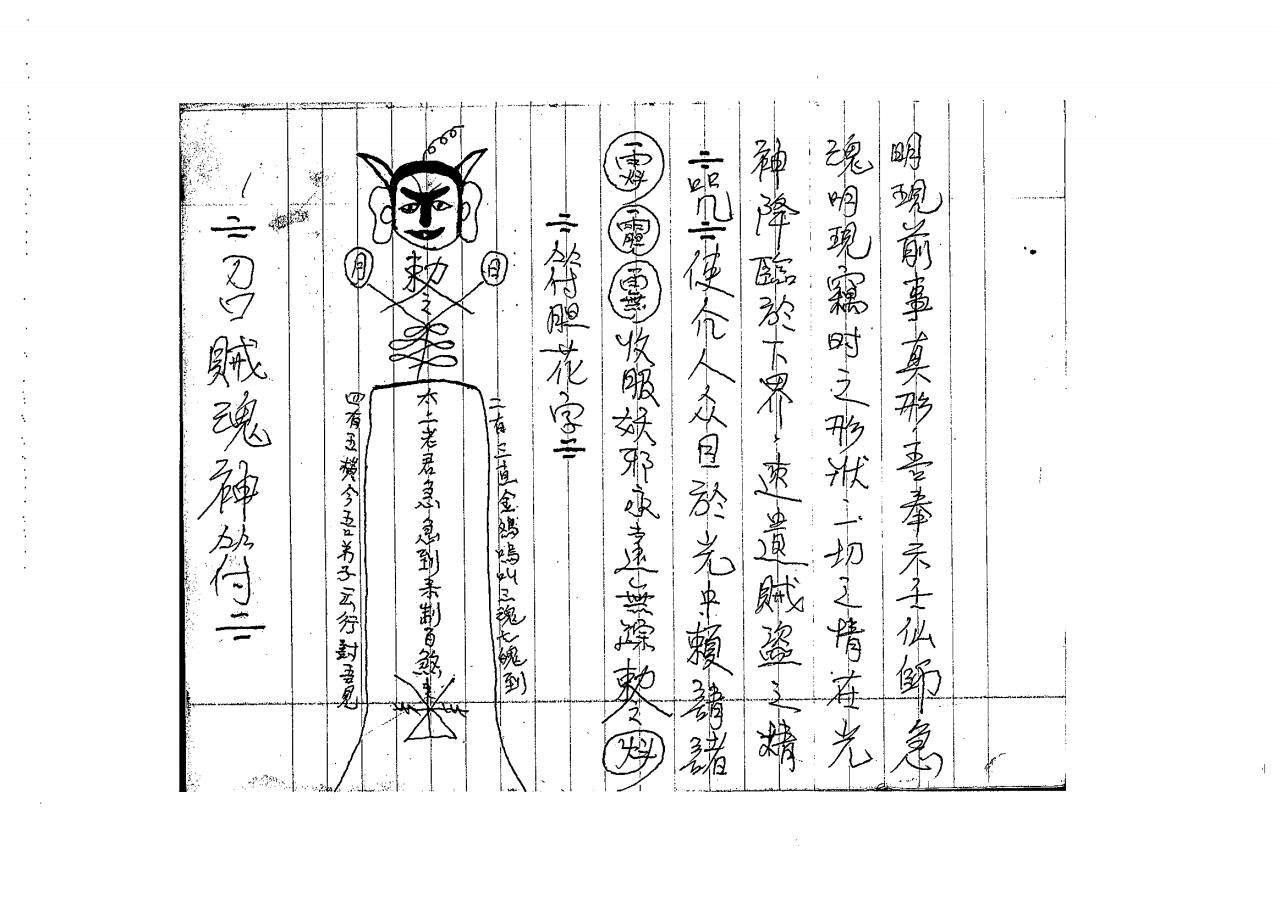 刀口賊魂神符
四有五猖今吾弟子一云行對吾見
月
敕
之
太二老君急急到柔制百煞
日
二有三直金鸡鳴叫三魂七魄到
符胆花字
收服妖邪永遠無踪敕之
咒使介人众目於光中賴請諸
神降臨於下界、速遺賊盜之精
魂明現竊时之形狀一切之情在光
明現前事真形吾奉示仙師急